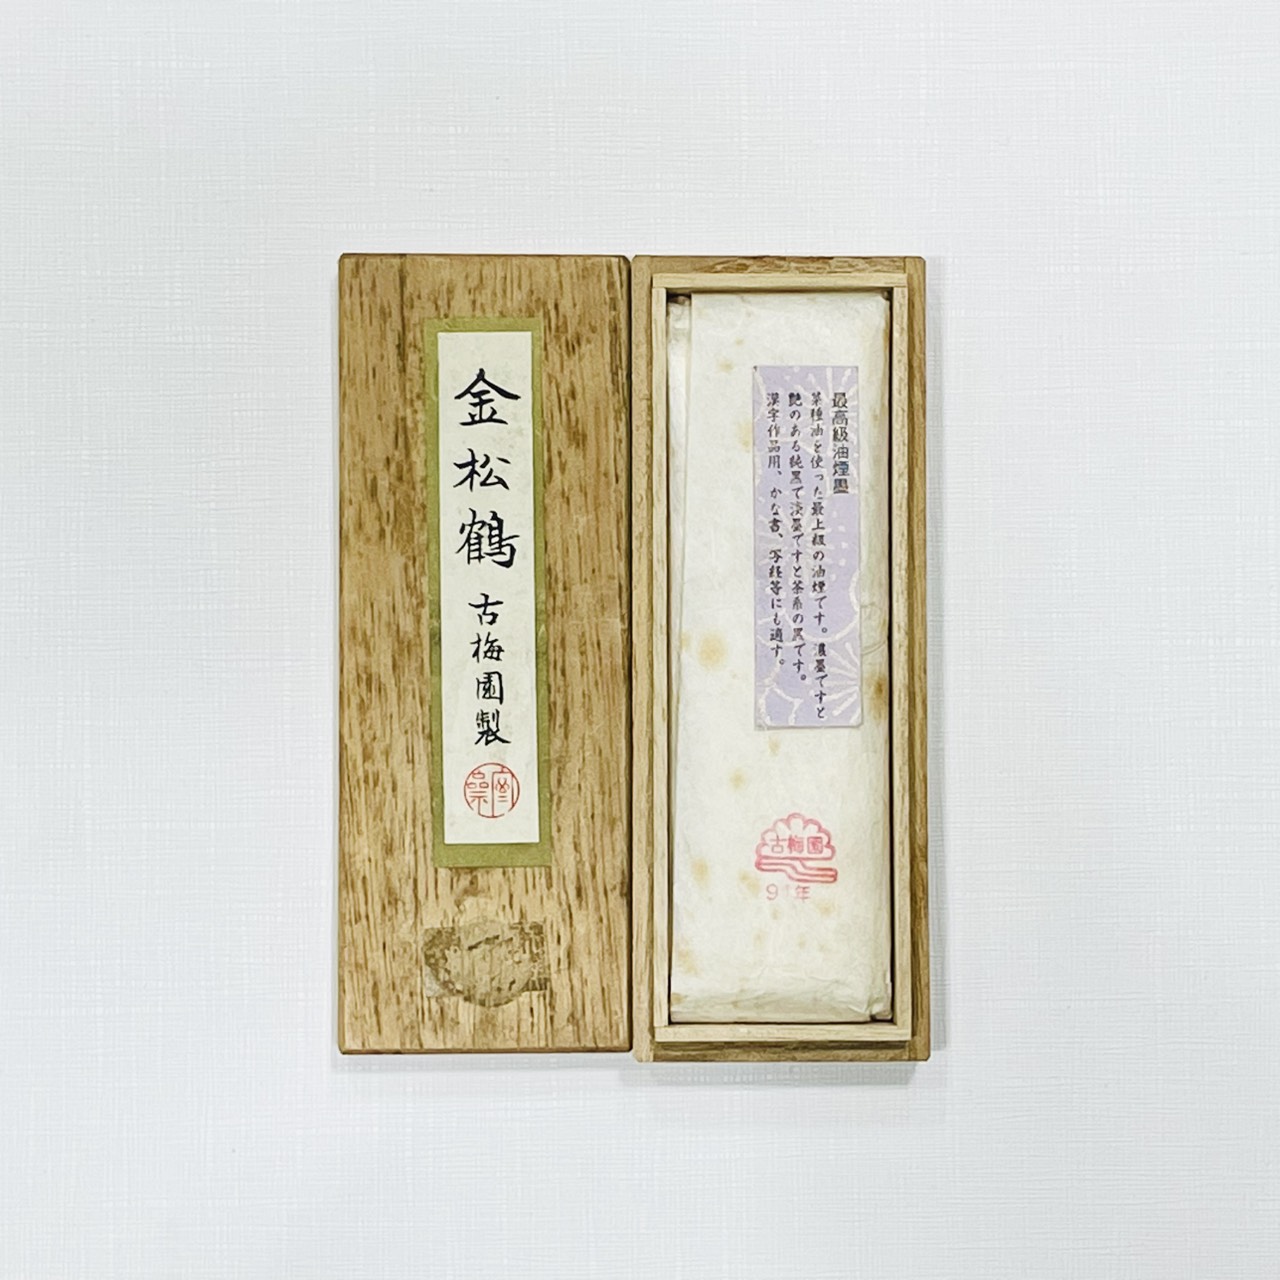 金松鶴 古梅園製
最高級油煙墨
菜種油を使った最上級の油煙です。濃墨ですと
艶のある純黒で淡墨ですと茶系の黒です。
漢字作品用、かな書、写経等にも適す。
古梅園
9 年